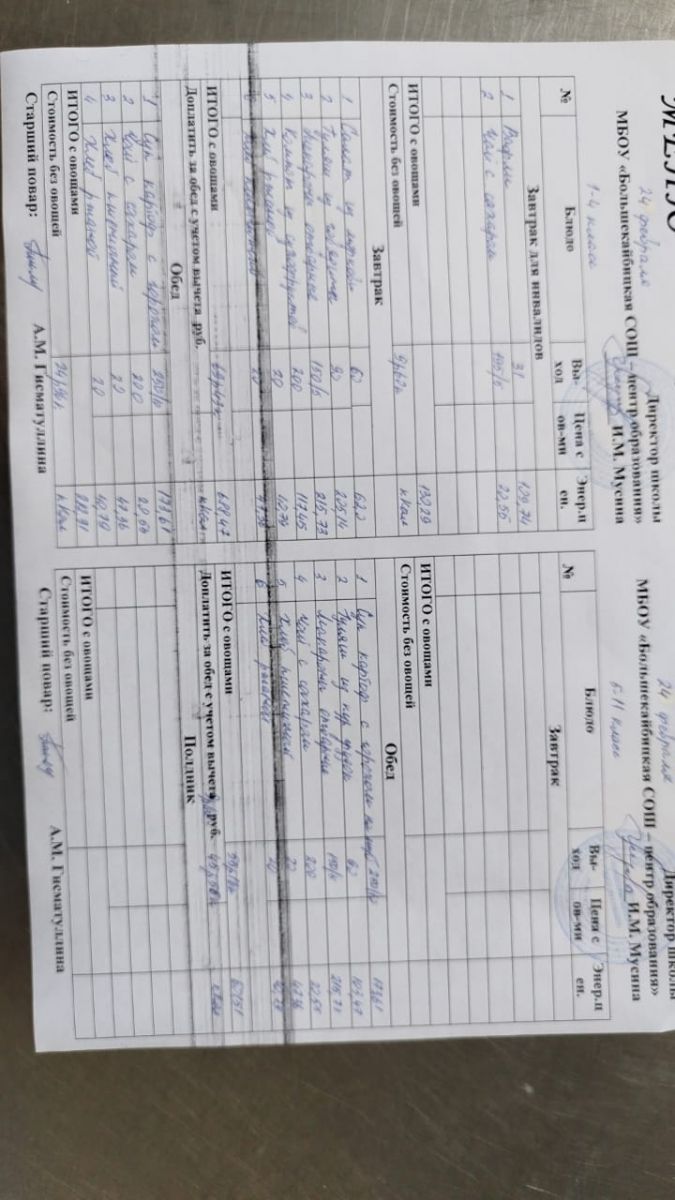 МЕНЮ
24 февраля
Директор школы
МБОУ «Большекайбицкая СОШ – центр образования»
И.М. Мусина
1-4 класс
№ Блюдо Вы-ход Цена с ов-ми Энер.ц ен.
Завтрак для инвалидов
1 Вафли 31 109,74
2 Чай с сахаром 22,55
ИТОГО с овощами 9р62к 132,29
Стоимость без овощей ккал
Завтрак
1 Салат из моркови 60 62,2
2 Гуляш из говядины 90 225,14
3 Макароны отварные 150/5 215,73
4 Компот из сухофруктов 200 117,45
5 Хлеб ржаной 20 40,79
6 Хлеб пшеничный 20 47,36
ИТОГО с овощами
Доплатить за обед с учетом вычета руб. ккал
Обед
1 Суп картоф с горохом 250/10 173,61
2 Чай с сахаром 200
3 Хлеб пшеничный 20 47,36
4 Хлеб ржаной 20 40,79
ИТОГО с овощами
Стоимость без овощей ккал
Старший повар: А.М. Гисматуллина
24 февраля
Директор школы
МБОУ «Большекайбицкая СОШ – центр образования»
И.М. Мусина
5-11 класс
№ Блюдо Вы-ход Цена с ов-ми Энер.ц ен.
Завтрак
ИТОГО с овощами
Стоимость без овощей
Обед
1 Суп картоф с горохом 173,61
2 Гуляш из кур 103,47
3 Макароны отварные 215,73
4 Чай с сахаром 200 22,55
5 Хлеб пшеничный 20 47,36
6 Хлеб ржаной 20
ИТОГО с овощами
Доплатить за обед с учетом вычета руб. ккал
Полдник
ИТОГО с овощами
Стоимость без овощей
Старший повар: А.М. Гисматуллина